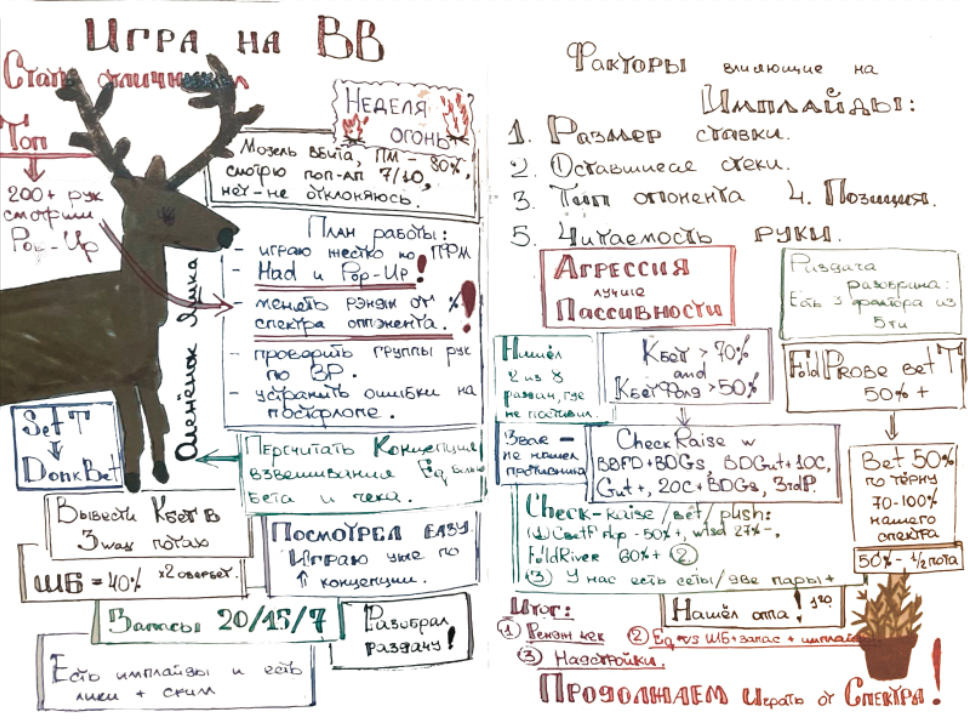 Игра на BB
Стать отличником
Топ
200+ рук
смотрим
Pop-Up
Неделя
огонь
Мозель вбита, ПМ - 80%,
смотрю поп-ап 7/10,
нет-не отклоняюсь.
План работы:
- играю жёстко по ПРМ
- Had и Pop-Up!
- менять рэнж от %
спектра оппонента.!
- проверить группы рук
по ВР.
- устранить ошибки на
постфлопе.
Оленёнок Яшка
Set T
DonkBet
Персчитать Концепция
взвешивания Eq больше
бета и чека.
Вывести Кбет в
3way потах
Посмотрел базу.
Играю уже по
↑ концепции.
ШБ = 40% x2 овербет.
Запасы 20/15/7
Разобрал
раздачу!
Есть имплайды и есть
лики + скил
Факторы влияющие на
Имплайды:
1. Размер ставки.
2. Оставшиеся стеки.
3. Тип опонента 4. Позиция.
5. Читаемость руки.
Агрессия
лучше
Пассивности
Раздача
разобрана:
Есть 3 фактора из
5ти
Нашёл
2 из 8
раздач, где
не поставил.
Кбет > 70%
and
КбетФолд > 50%
Fold Probe bet T
50% +
3вае -
не нашел
противника
Check Raise w
BBFD+BDGs, BDGut+1OC,
Gut+, 2OC+BDGs, 3rdP.
Bet 50%
по тёрну
70-100%
нашего
спектра
50%- 1/2 пота
Check-raise/bet/push:
① CbetF flop - 50%+, wtsd 27%-,
FoldRiver 60%+ ②
③ У нас есть сеты/две пары+
Нашёл оппа!
Итог:
① Рэнж чек ② Eq vs ШБ+запас + имплайды
③ Надстройки.
Продолжаем играть от Спектра!